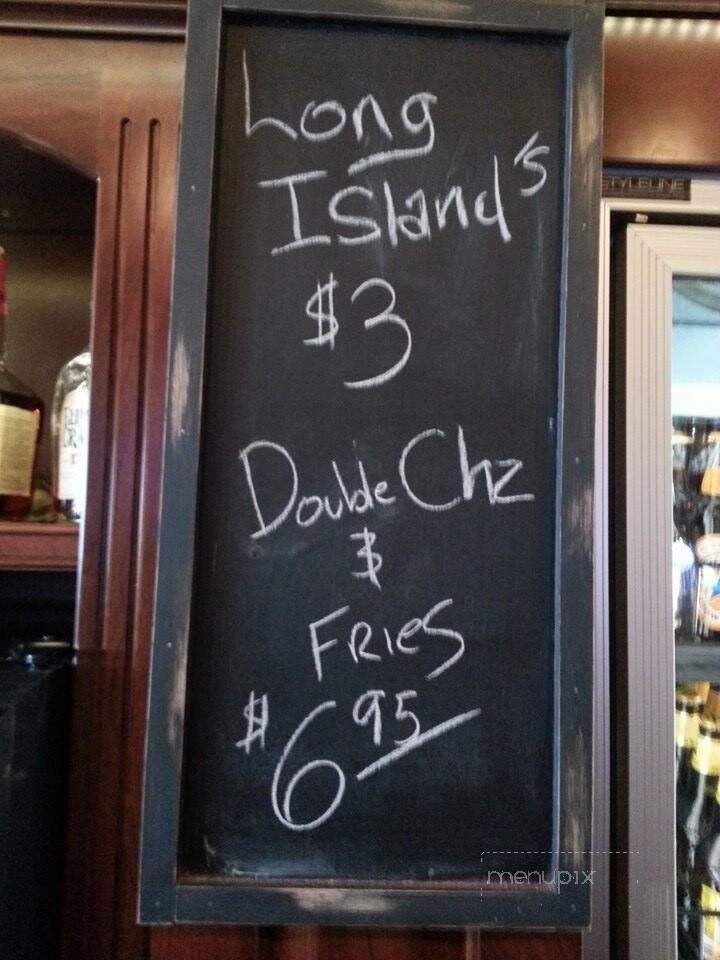 Long
Island's
$3
Double Chz
&
Fries
$6 95
STYLELINE
menupix